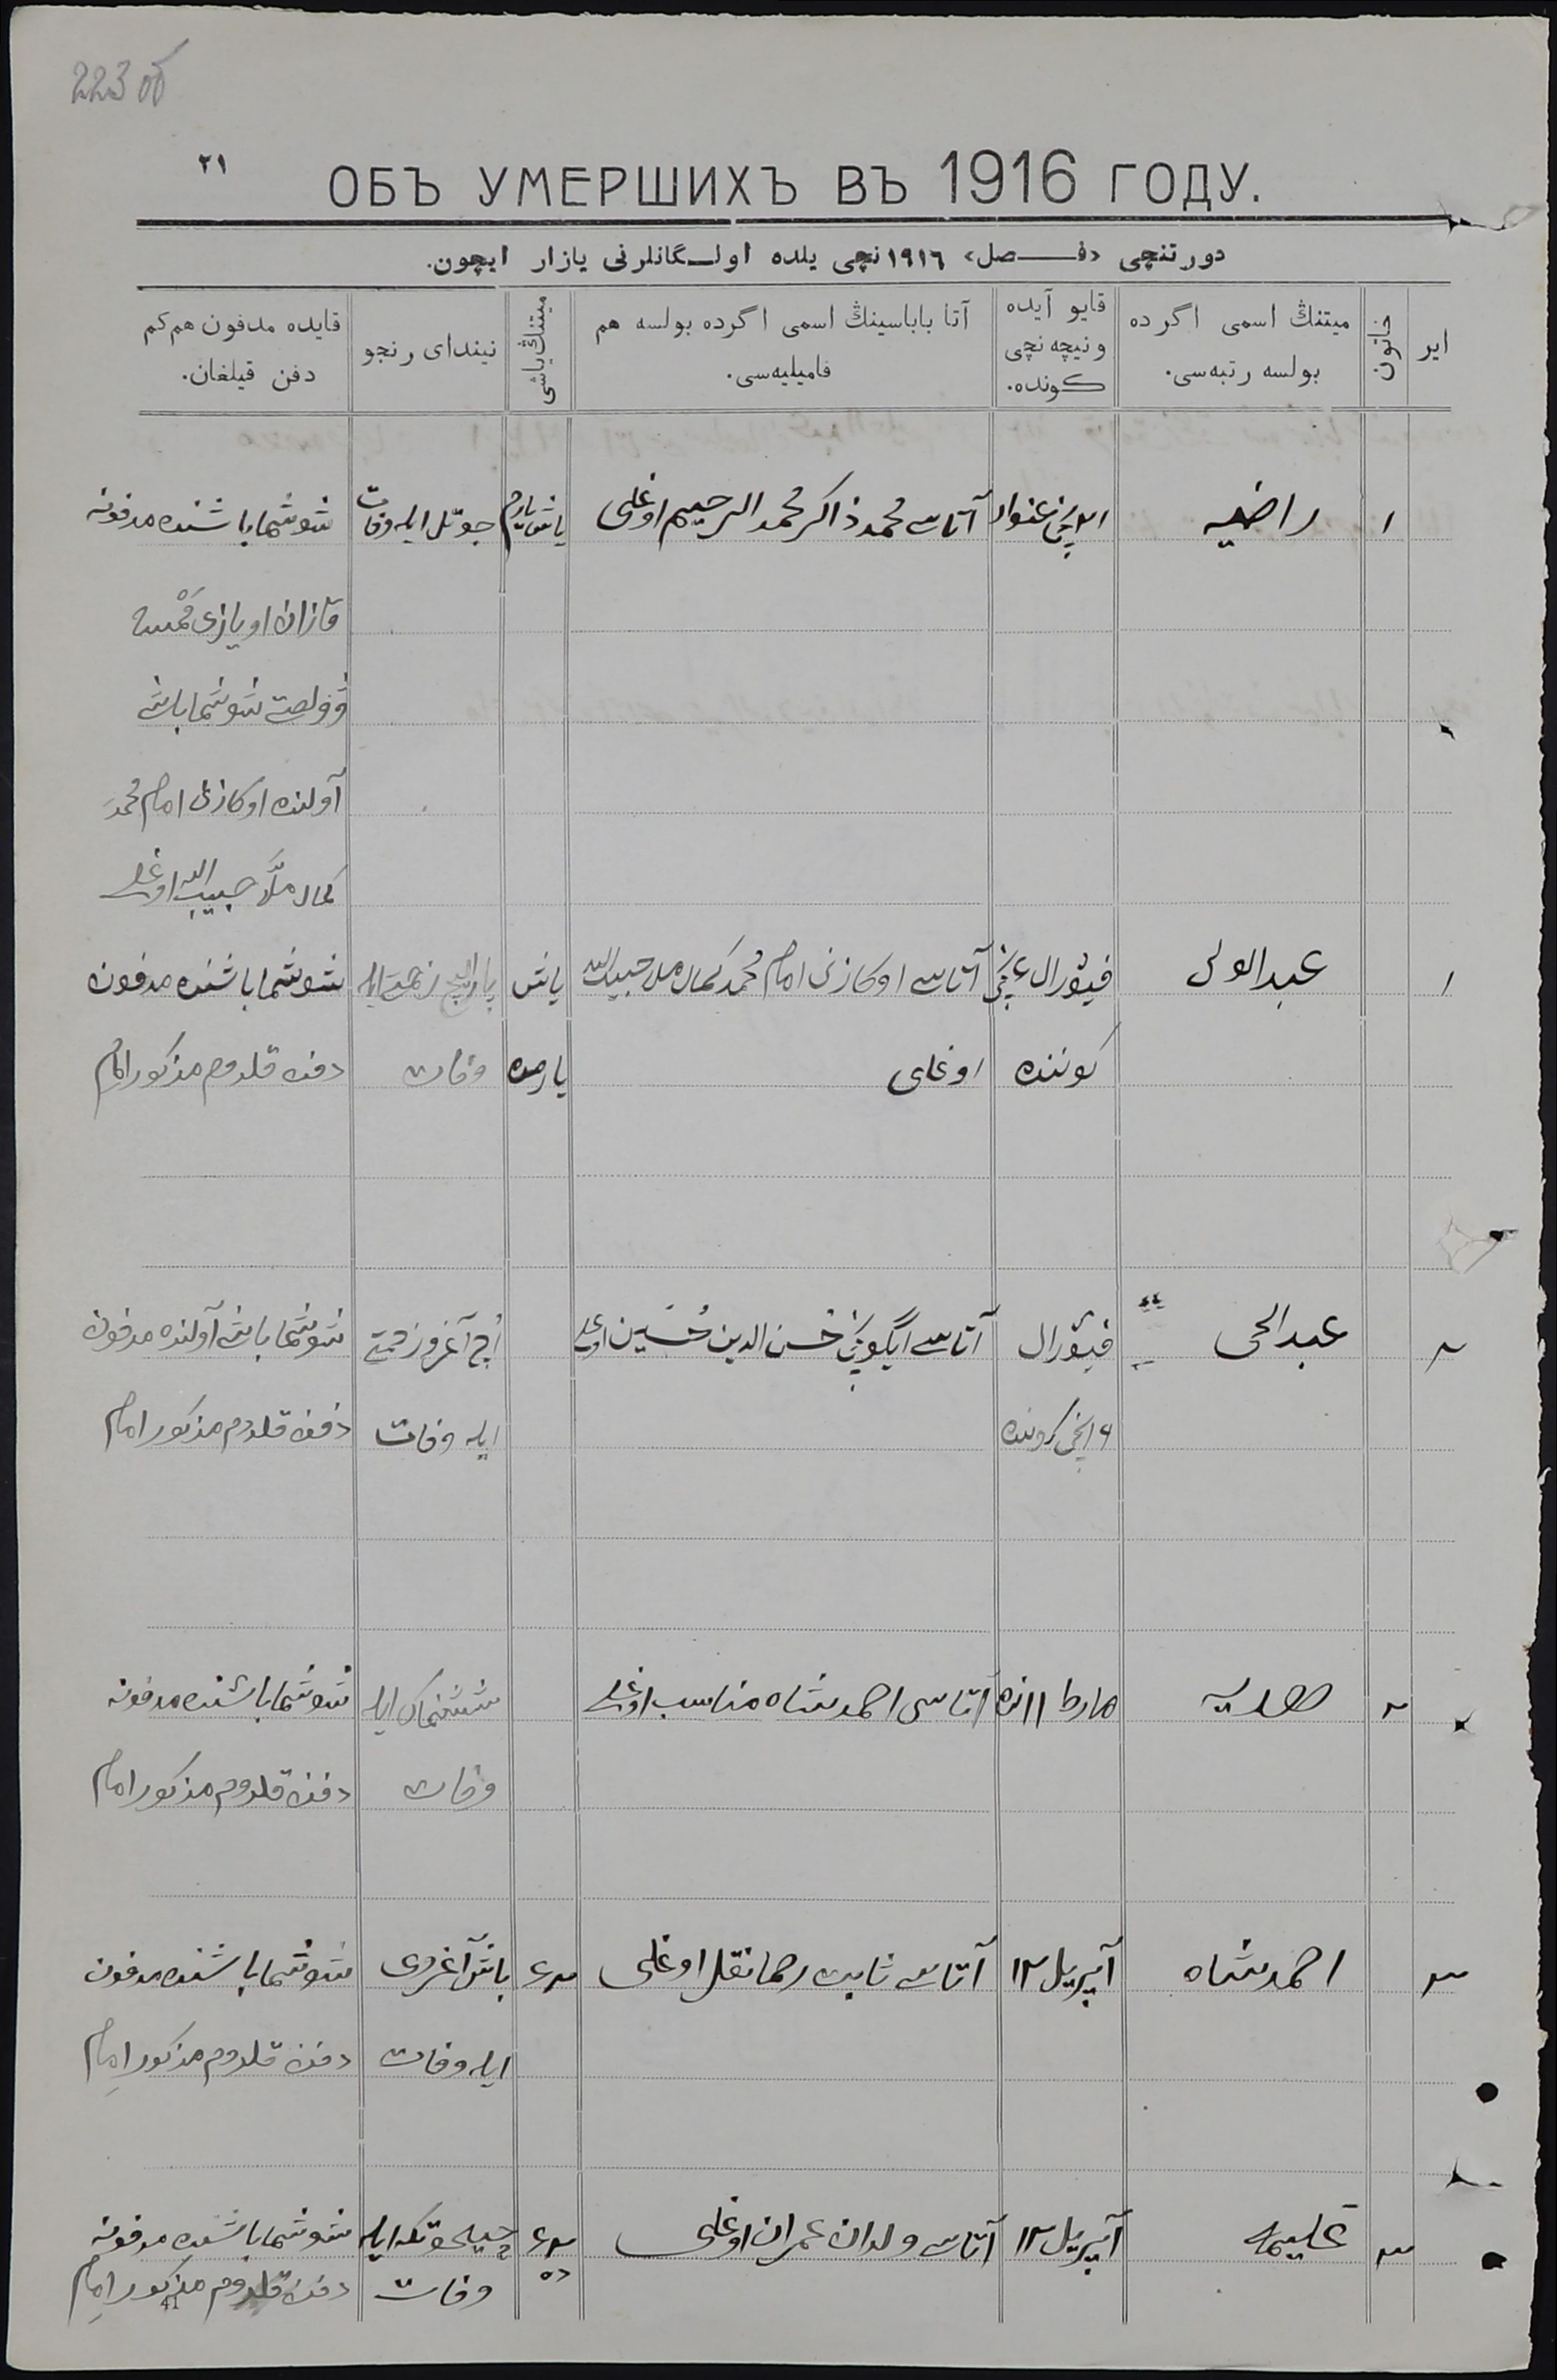 223 об
٢١
ОБЪ УМЕРШИХЪ ВЪ 1916 ГОДУ.
دورتنچی «فصل» ١٩١٦نچی یلده اولگانلرنی یازار ایچون.
ایر
خاتون
میتنڭ اسمی اگرده بولسه رتبه‌سی.
قایو آیده ونیچه نچی کونده.
آتا باباسینڭ اسمی اگرده بولسه هم فامیلیه‌سی.
میتنڭ یاشی
نیندای رنجو
قایده مدفون هم‌کم دفن قیلغان.
١ راضیه غنوار آتاسی محمد ذاکر محمد الرحیم اوغلی یاش یارم جوتل ایله وفات شوشماباشنده مدفونه
قازان اویازی
شوشماباشی
آولنده اوکازنی امام محمد
کمال ملا حبیب الله اوغلی
١ عبدالولی فیۋرال آتاسی اوکازنی امام محمد کمال ملا حبیب الله یاش شوشماباشنده مدفون
کوننده اوغلی یارمده وفات دفن قلدوم مذکور امام
٢ عبدالحی فیۋرال آتاسی حسن الدین حسین اوغلی اچ آغرو زحمتی شوشماباش آولنده مدفون
کوننده ایله وفات دفن قلدوم مذکور امام
٢ مارط ١١نده آتاسی احمدشاه مناسب اوغلی ایله شوشماباشنده مدفونه
وفات دفن قلدوم مذکور امام
٣ احمدشاه آپریل ١٢ آتاسی ثابت رحمانقل اوغلی باش آغروی شوشماباشنده مدفون
ایله وفات دفن قلدوم مذکور امام
٣ علیمه آپریل ١٢ آتاسی ولدان عمران اوغلی ایله شوشماباشنده مدفونه
وفات دفن قلدوم مذکور امام
41